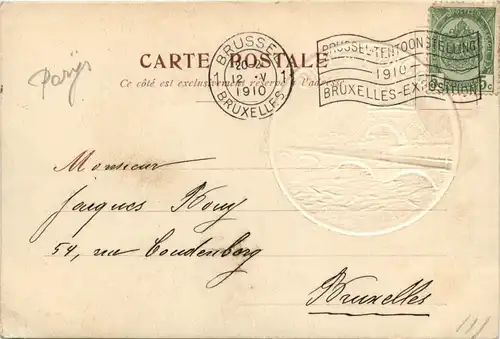 CARTE POSTALE
Ce côté est exclusivement réservé à l'adresse
BRUSSEL
1 20- 1
12 -V
1910
BRUXELLES
BRUSSEL-TENTOONSTELLING
1910
BRUXELLES-EXPOSITION
5 5c
Parijs
Monsieur
Jacques
54, rue Coudenberg
Bruxelles